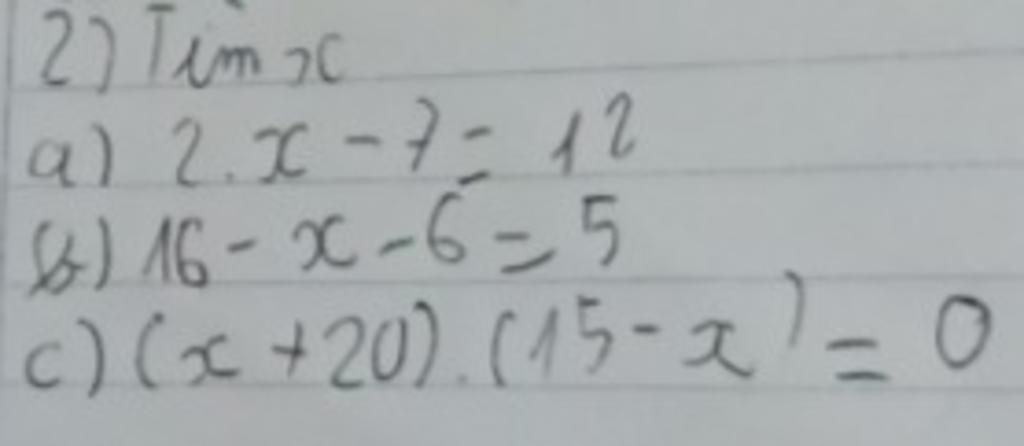 2) Tìm x
a) 2.x - 7 = 12
b) 16 - x - 6 = 5
c) (x + 20).(15 - x) = 0